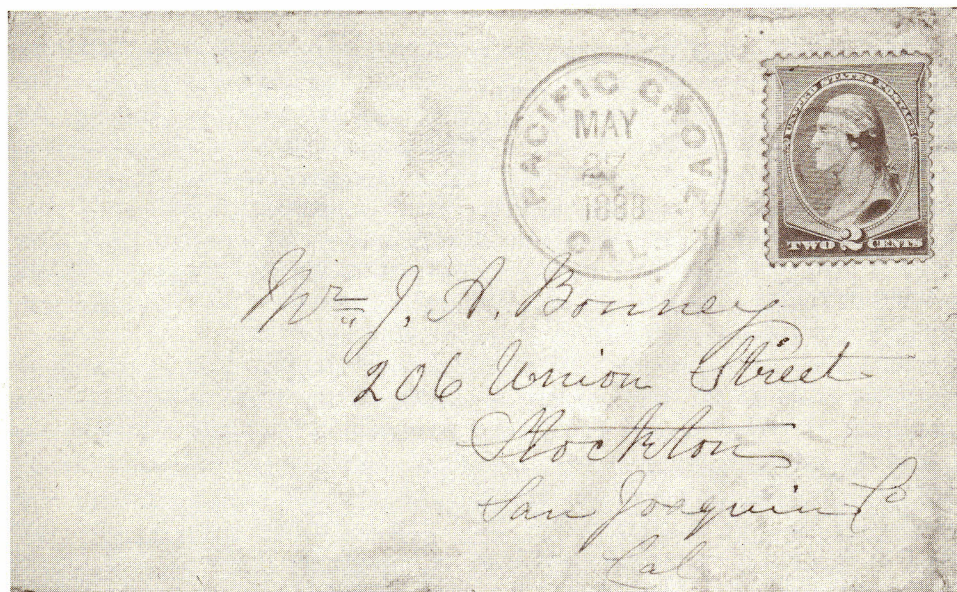 PACIFIC GROVE,
MAY
27
1888
CAL.
UNITED STATES POSTAGE
TWO 2 CENTS
Mr. J. A. Bonney
206 Union Street
Stockton
San Joaquin Co
Cal